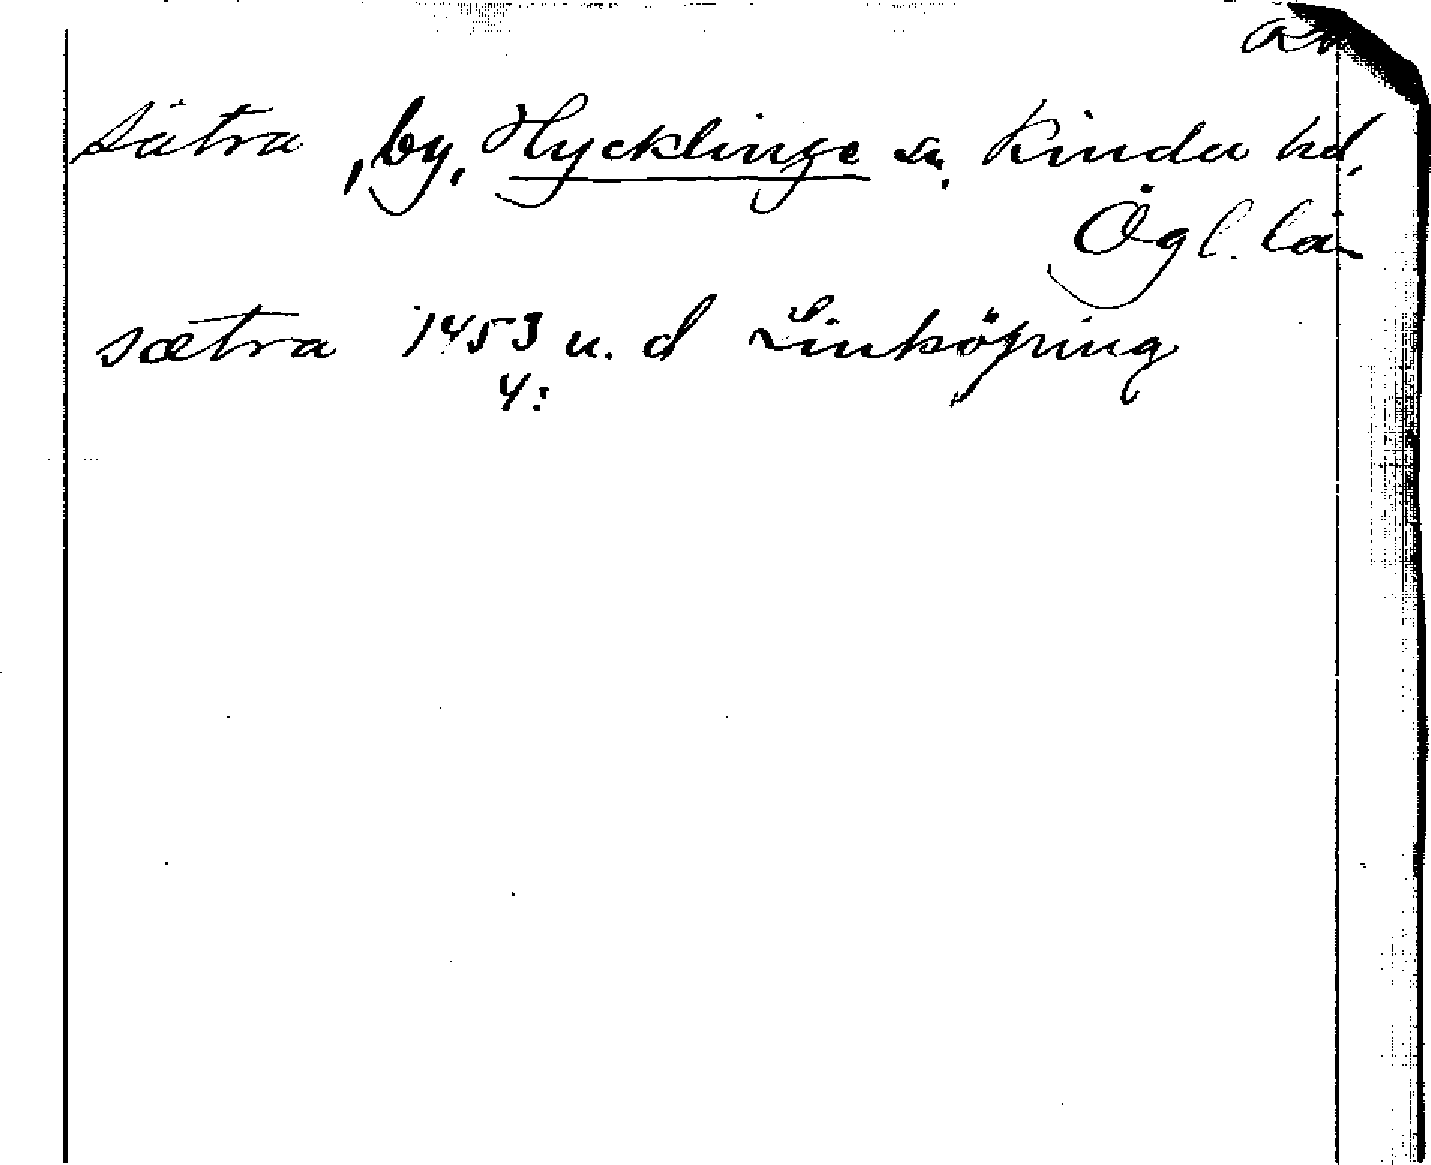 Sätra, by, Hycklinge sn. Kinda hd,
Ögl. län
sætra 1453 u. d Linköping
4: